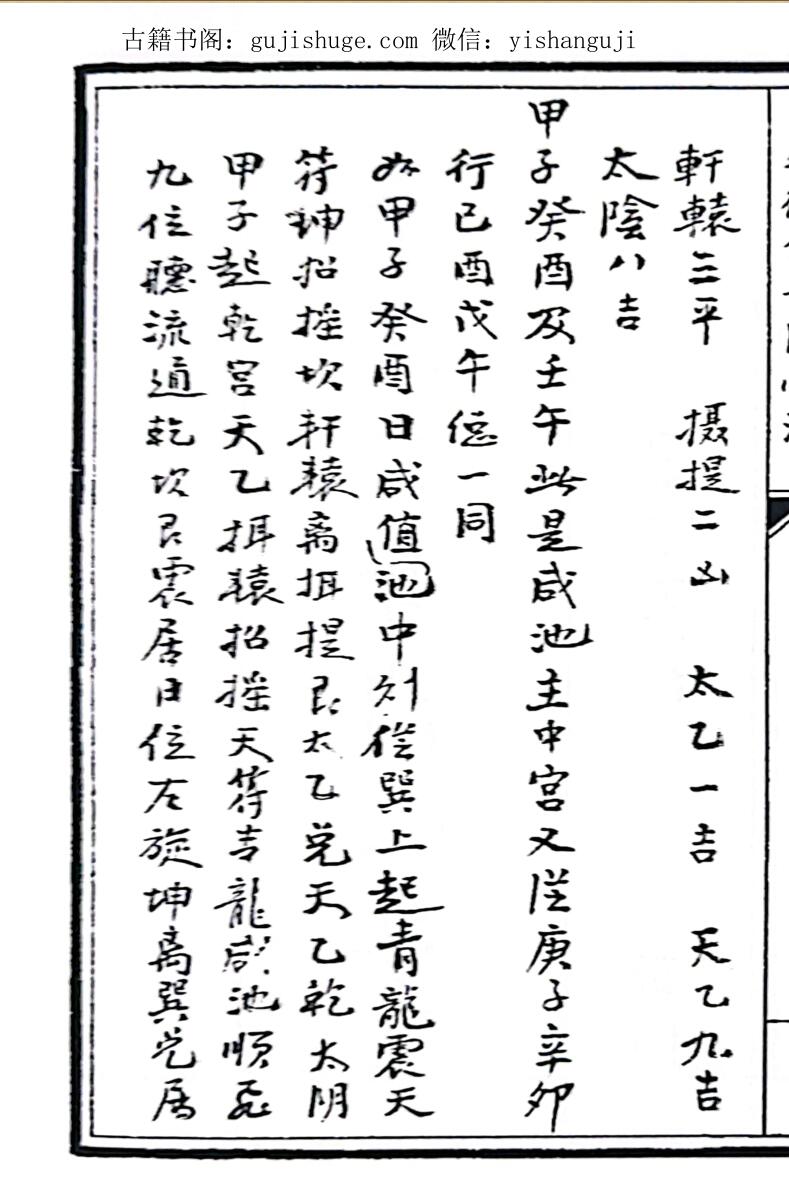 古籍书阁：gujishuge.com 微信：yishanguji
軒轅三平　摄提二凶　太乙一吉　天乙九吉
太陰八吉
甲子癸酉及壬午此是咸池主中宫又從庚子辛卯
行已酉戊午德一同
如甲子癸酉日咸值池中则從巽上起青龍震天
符坤招摇坎軒轅离提艮太乙兑天乙乾太阴
甲子起乾宫天乙轅招摇天符吉龍咸池順飛
九位聽流通乾坎艮震居日位左旋坤离巽兑居